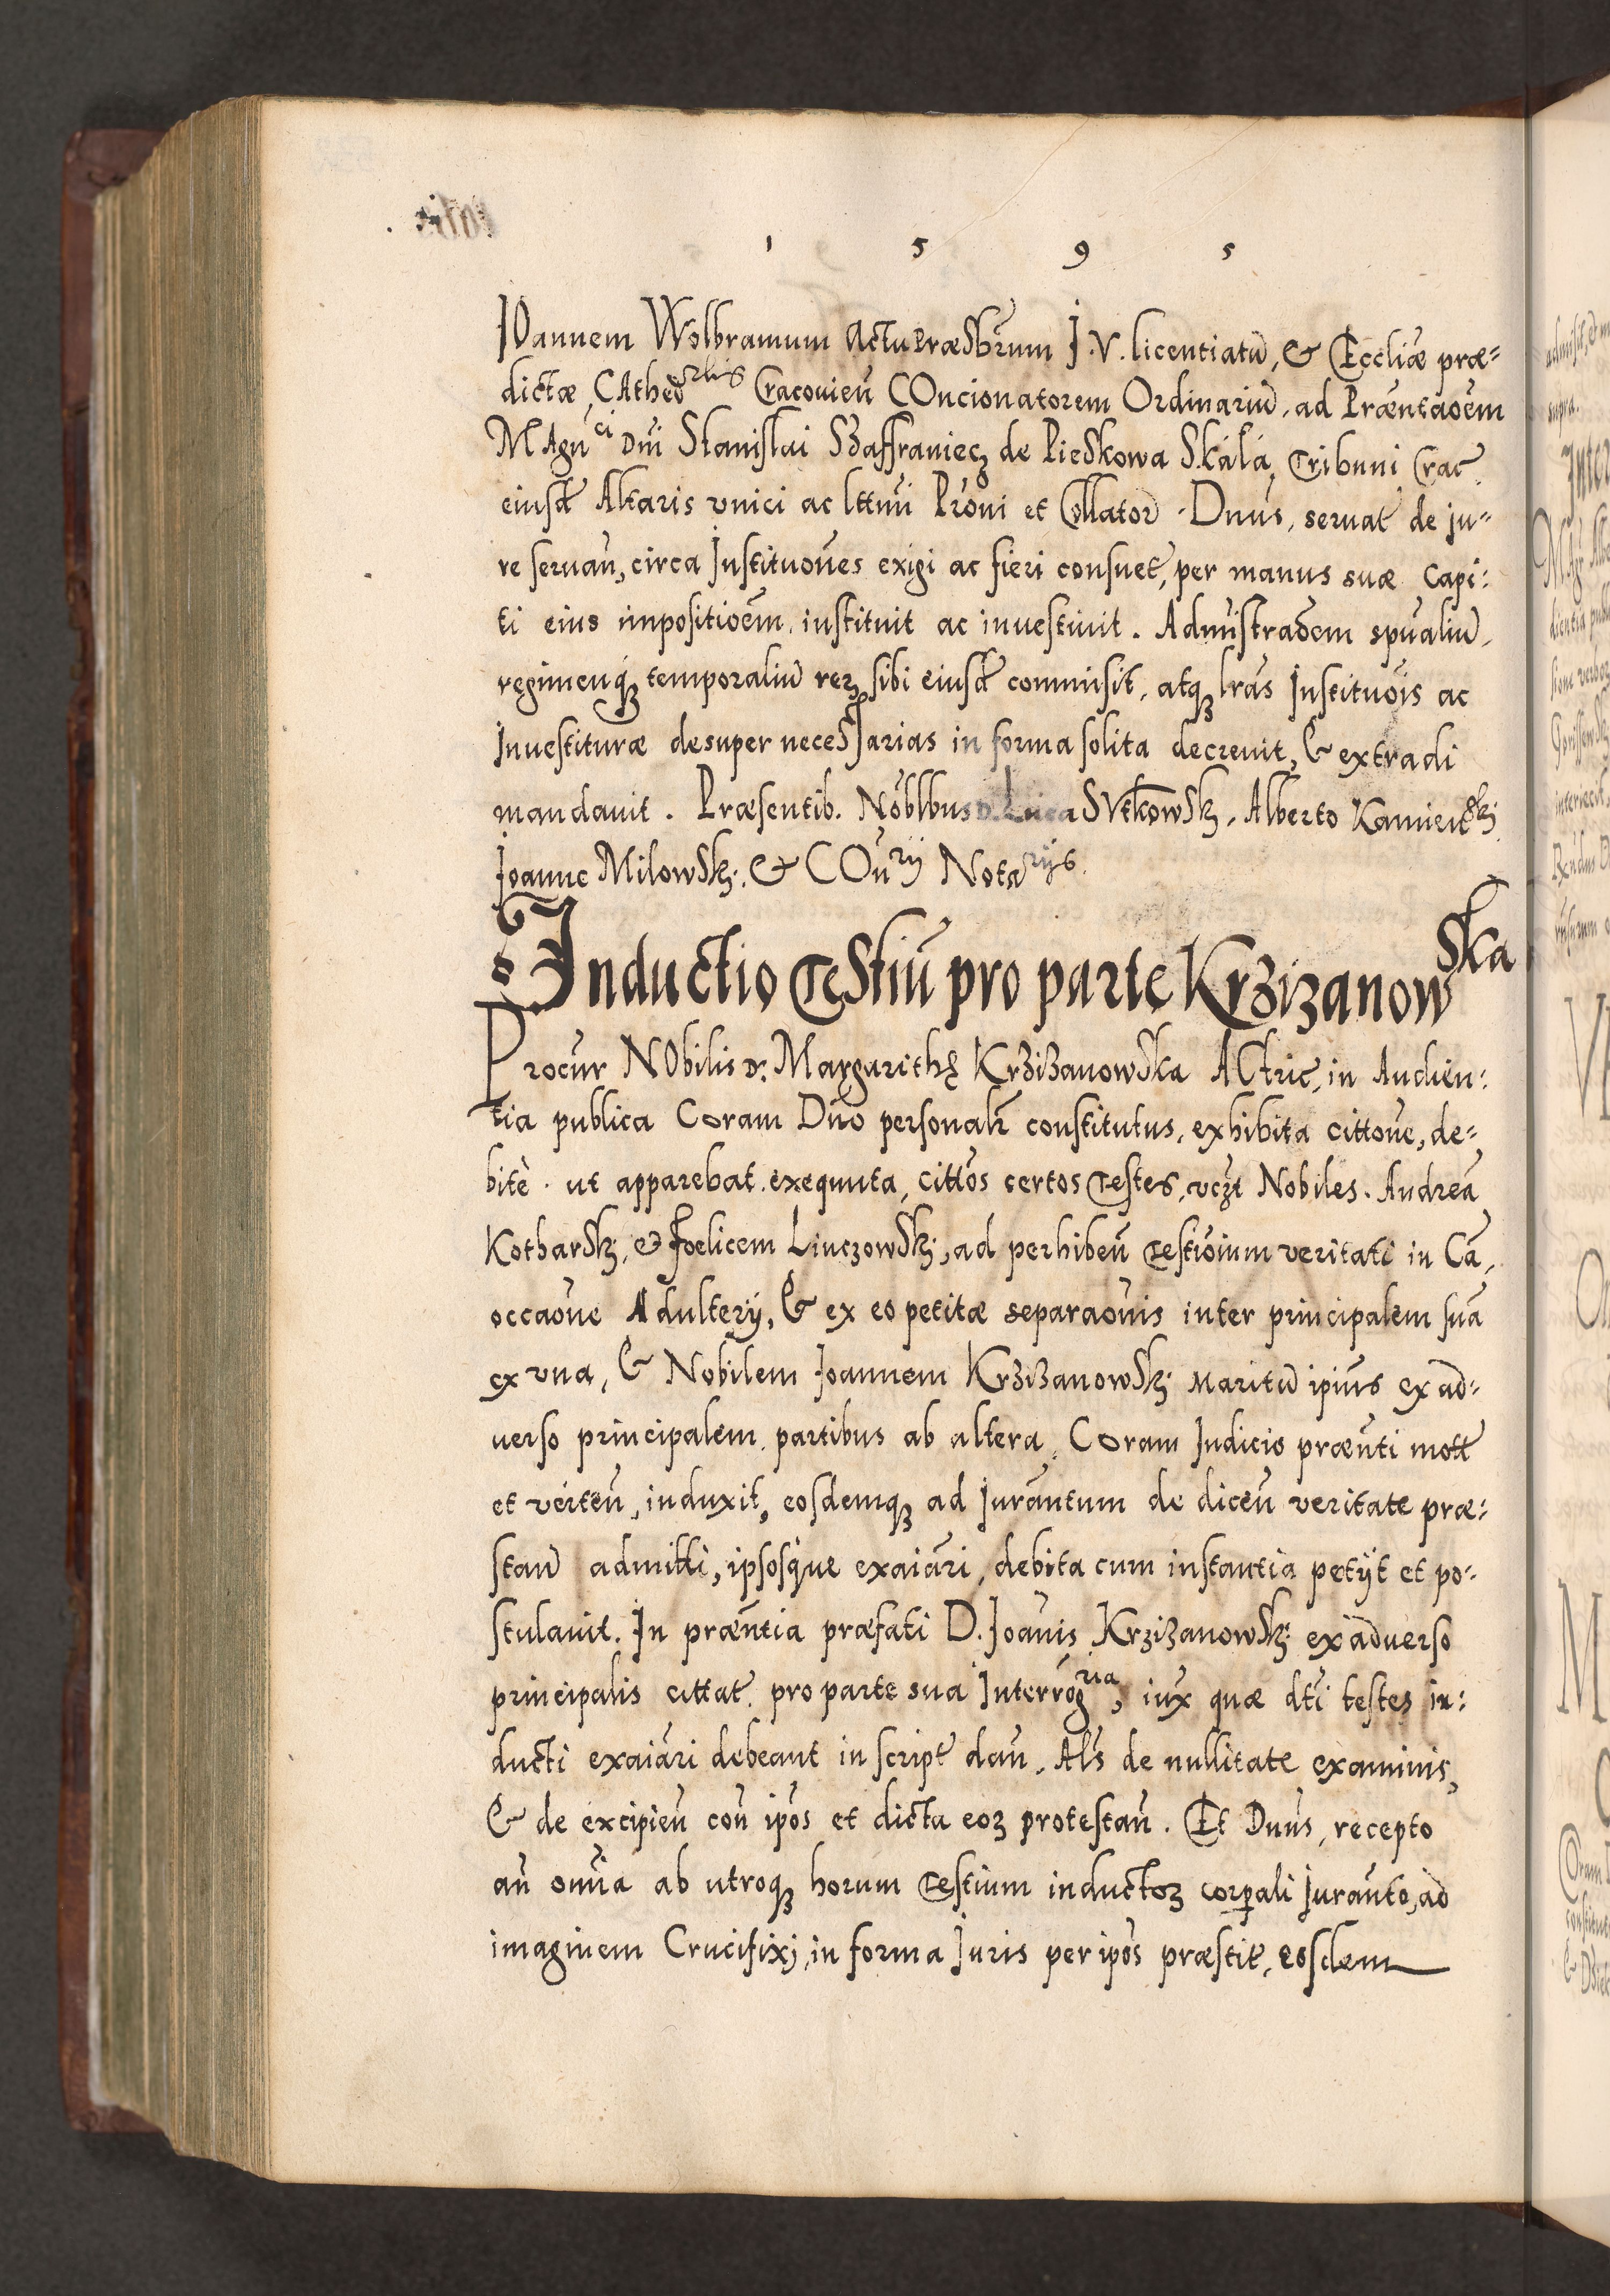 1 5 9 5
JOannem Wolbramum Actu Præsbr̃um J. V. licentiatũ, & Eccl̃iæ præ=
dictæ CAthedrlis Cracouieñ COncionatorem Ordinariũ, ad Præntãoem
MAgnci Dñi Stanislai Szaffraniecz de Pieskowa Skala, Tribuni Crac̃
eiusd̃ Altaris vnici ac lttm̃i Pr̃oni et Collator̃. Dñus, seruat̃ de ju=
re seruañ, circa Institu̅o̅nes exigi ac fieri consuet̃, per manus suæ capi=
ti eius impositio̅em, instituit ac inuestiuit. Adm̃istrao̅em sp̃ualiũ,
regimenq́ꝫ temporaliũ reꝝ sibi eiusd̃ commisit, atqꝫ lr̃as Institu̅o̅is ac
Inuestituræ desuper necessarias in forma solita decreuit, & extradi
mandauit. Præsentib. Nõblbus D. Luca SVtkowskj, Alberto Kamienskj
Joanne Milowskj. & COũrij Notarijs.
Inductio Testiũ pro parte Krzizanowska
Procur̃ NObilis D: Margarithę Krzizanowska ACtric̃, in Audien=
tia publica Coram Dño personalr̃ constitutus, exhibita citt̃one, de=
bitè. ut apparebat. exequuta, citt̃os certos Testes, vcz̃t Nobiles. Andreã
Kotharskj, & Foelicem Linczowskj, ad perhibeñ Testi̅o̅ium veritati in Cã,
occao̅ne Adulterij, & ex eo petitæ separao̅nis inter principalem suã
ex vna, & Nobilem Joannem Krzizanowskj Maritũ ip̃ius ex ad=
uerso principalem. partibus ab altera, Coram Judicio prænti mott̃
et verteñ, induxit, eosdemqꝫ ad Jurañtum de diceñ veritate præ=
stañ admitti, ipsosq́ue exaiãri, debita cum instantia petijt et po=
stulauit. In præñtia præfati D. Joañis Krzizanowskj ex aduerso
principalis cittat̃. pro parte sua Interrõgria, iux̃ quæ dt̃i testes in=
ducti exaiãri debeant in script̃ dañ. Al̃s de nullitate examinis,
& de excipieñ coñ ip̃os et dicta eoꝝ protestañ. Et Dñus, recepto
añ om̃ia ab utroqꝫ horum Testium inductoꝝ corp̃ali Jurañto, ad
imaginem Crucifixj, in forma Juris per ip̃os præstit̃, eosdem